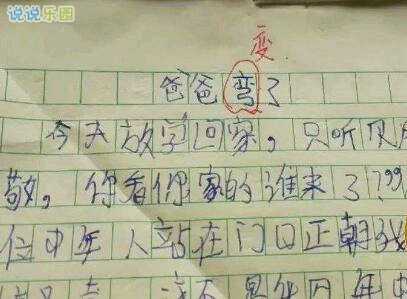 说说乐园
变
爸爸弯了
今天放学回家，只听
敲。你看你家的谁来了?
位中年人站在门口正朝我